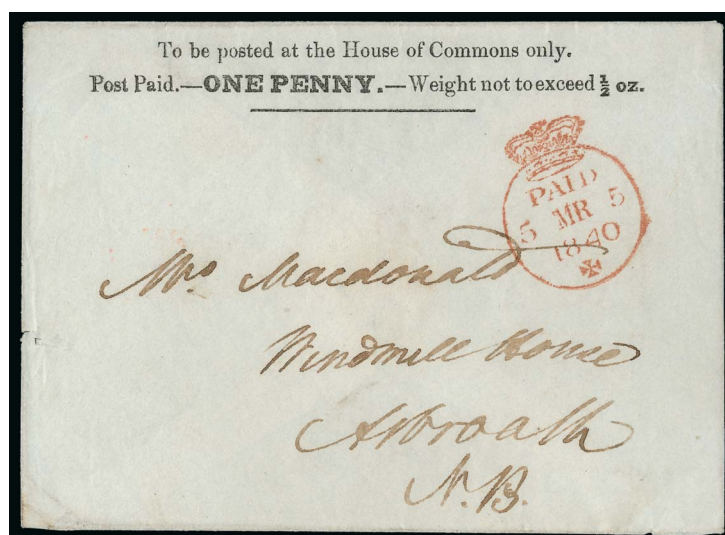 To be posted at the House of Commons only.
Post Paid.—ONE PENNY.—Weight not to exceed ½ oz.
PAID
5 MR 5
1840
Mrs Macdonald
Windmill House
Arbroath
N.B.